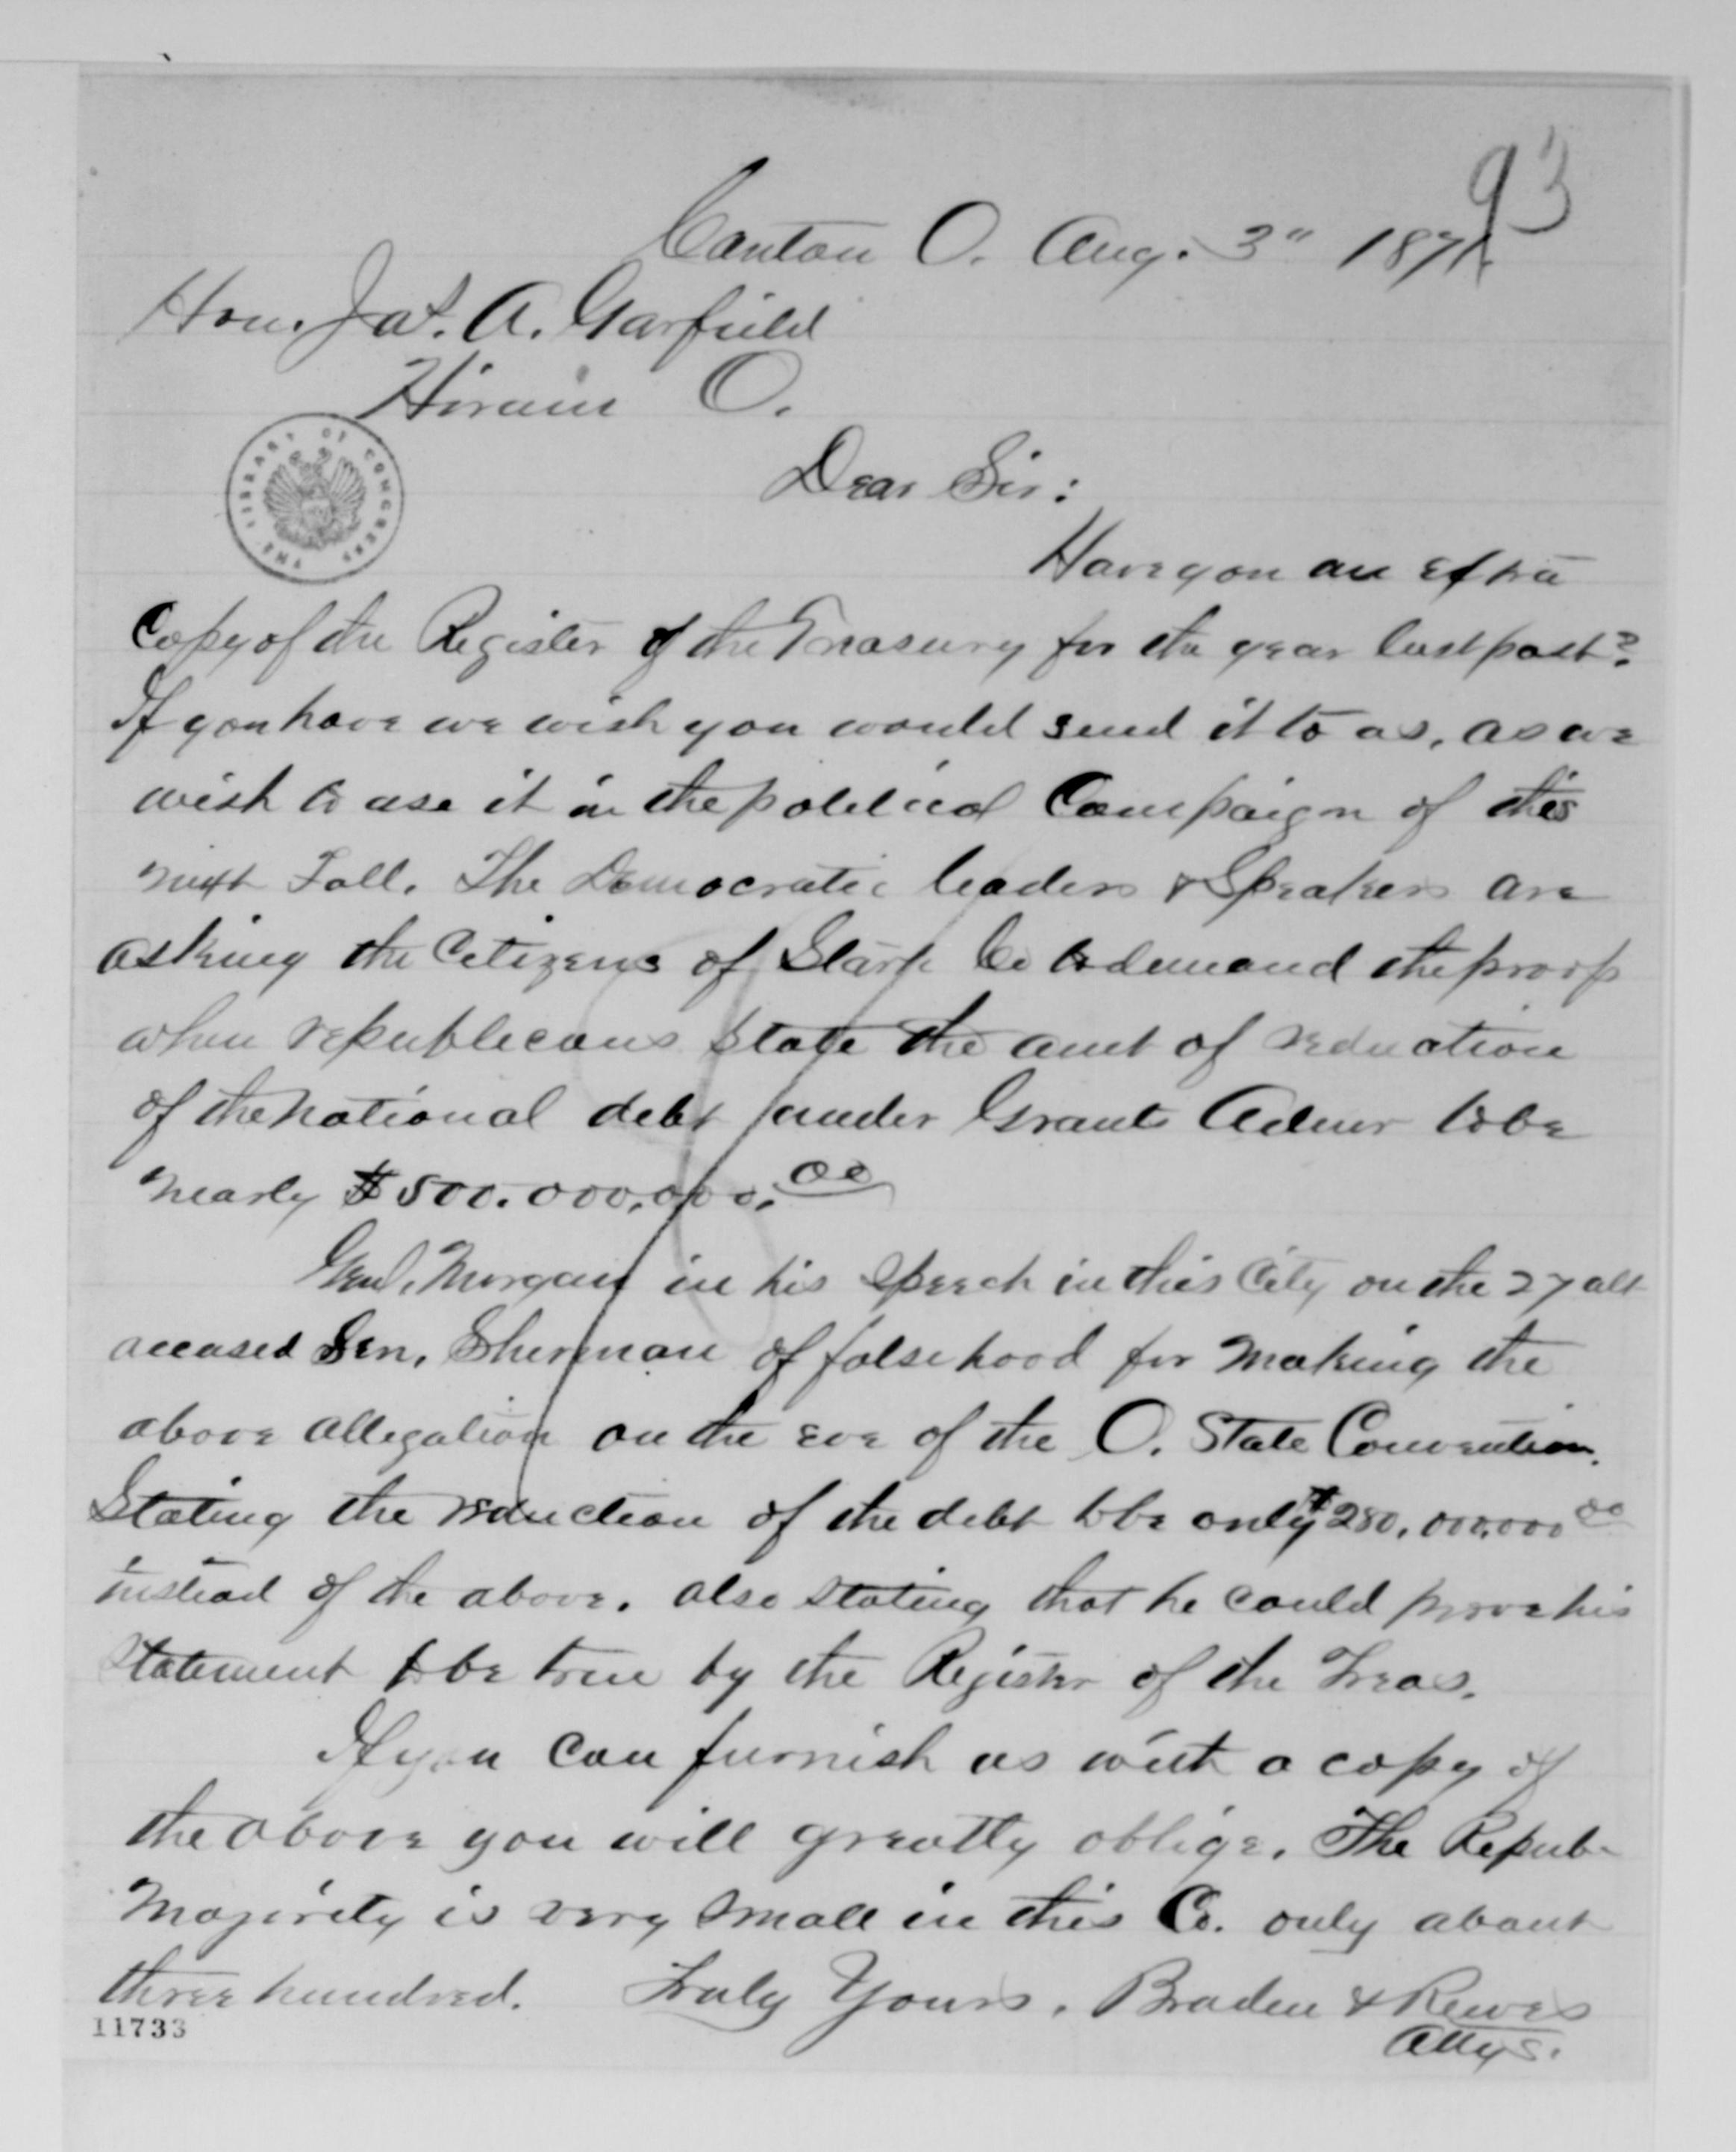 93
Canton O. Aug. 3" 187
Hon. Jas. A. Garfield
Hiram O.
THE LIBRARY OF CONGRESS
Dear Sir:
Have you an extra
Copy of the Register of the Treasury for the year last past?
If you have we wish you would send it to us, as we
wish to use it in the political Campaign of this
next Fall. The Democratic leaders & Speakers are
asking the Citizens of Stark Co to demand the proof
when republicans state the amt of reduction
of the national debt under Grants Admr to be
nearly $500.000,000.00
Genl. Morgan in his speech in this City on the 27 ult
accused Sen. Sherman of falsehood for making the
above allegation on the eve of the O. State Convention.
Stating the reduction of the debt to be only $280,000,000 00
instead of the above. also stating that he could prove his
statement to be true by the Register of the Treas.
If you can furnish us with a copy of
the above you will greatly oblige. The Repub-
Majority is very small in this Co. only about
three hundred. Truly Yours, Braden &
11733
Attys.